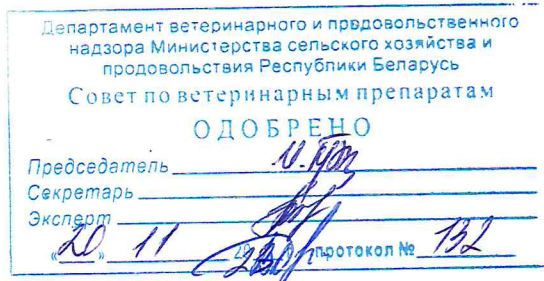 Департамент ветеринарного и продовольственного
надзора Министерства сельского хозяйства и
продовольствия Республики Беларусь
Совет по ветеринарным препаратам
ОДОБРЕНО
Председатель
Секретарь
Эксперт
«20» 11 протокол № 132